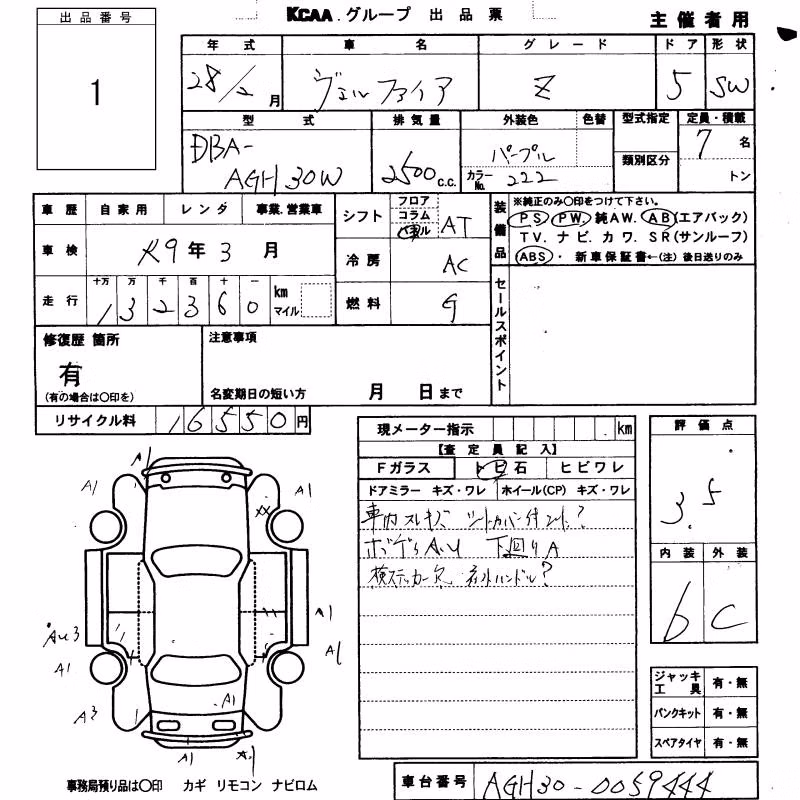 KCAA.グループ 出品票
主催者用
出品番号
1
年式 車名 グレード ドア 形状
28/2月 ヴェルファイア Z 5 SW
型式 排気量 外装色 色替 型式指定 定員・積載
DBA-AGH30W 2500c.c. パープル カラーNo. 222 類別区分 7名 トン
車歴 自家用 レンタ 事業.営業車
車検 R9年3月
走行 十万 万 千 百 十 一 km マイル
132360
シフト フロア コラム パネル AT
冷房 AC
燃料 G
装備品
※純正のみ〇印をつけて下さい。
PS PW 純AW. AB(エアバック)
TV. ナビ. カワ. SR(サンルーフ)
ABS ・ 新車保証書←(注) 後日送りのみ
セールスポイント
修復歴 箇所
有
(有の場合は〇印を)
注意事項
名変期日の短い方 月 日まで
リサイクル料 16550円
現メーター指示 km
【査定員記入】
Fガラス トビ石 ヒビワレ
ドアミラー キズ・ワレ ホイール(CP) キズ・ワレ
車内スレキズ シートカバー付
ボデーAU 下回りA
検ステッカー欠 ハンドル?
評価点
3.5
内装 外装
b C
ジャッキ 工具 有・無
パンクキット 有・無
スペアタイヤ 有・無
A1
A1
A1
A1
AU3
A1
A1
A3
A1
A1
事務局預り品は〇印 カギ リモコン ナビロム
車台番号 AGH30-0059444